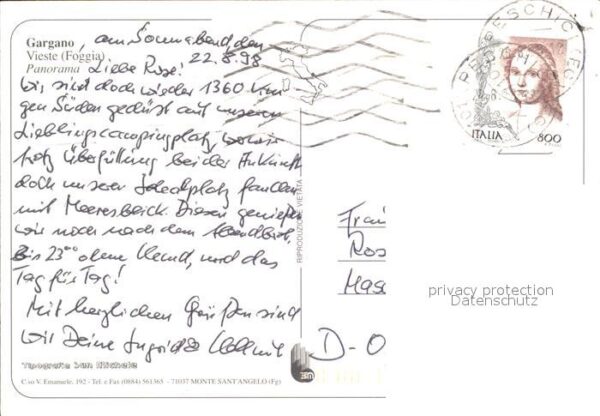 Gargano
Vieste (Foggia)
Panorama
am Sonnabend den
22.8.98
Liebe Rose!
Wir sind doch wieder 1360 km
gen Süden gedüst auf unseren
Lieblingscampingplatz, wo wir
trotz Überfüllung bei der Ankunft
doch unseren Idealplatz fanden
mit Meeresblick. Diesen genießen
wir noch nach dem Abendbrot.
Bis 23⁰⁰ ohne Hemd, und das
Tag für Tag!
Mit herzlichen Grüßen sind
wir Deine Ingrid &
Tipografia San Michele
C.so V. Emanuele, 192 - Tel. e Fax (0884) 561365 - 71037 MONTE SANT'ANGELO (Fg)
RIPRODUZIONE VIETATA
PESCHICI (FG)
ITALIA 800
Frau
Ros
Hase
D-0
privacy protection
Datenschutz